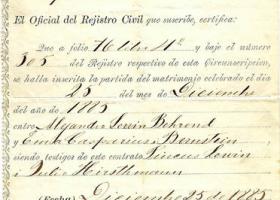 El Oficial del Rejistro Civil que suscribe, certifica:
Que a folio 76 libro 1º y bajo el número
305 del Rejistro respectivo de esta Circunscripcion,
se halla inscrita la partida del matrimonio celebrado el dia
25 del mes de Diciembre
del año de 1885
entre Alejandro Lewin Behrend
y Emma Casparius Bernstein,
siendo testigos de este contrato Lewin
i Julio Hirsthmann
(Fecha) Diciembre 25 de 1885